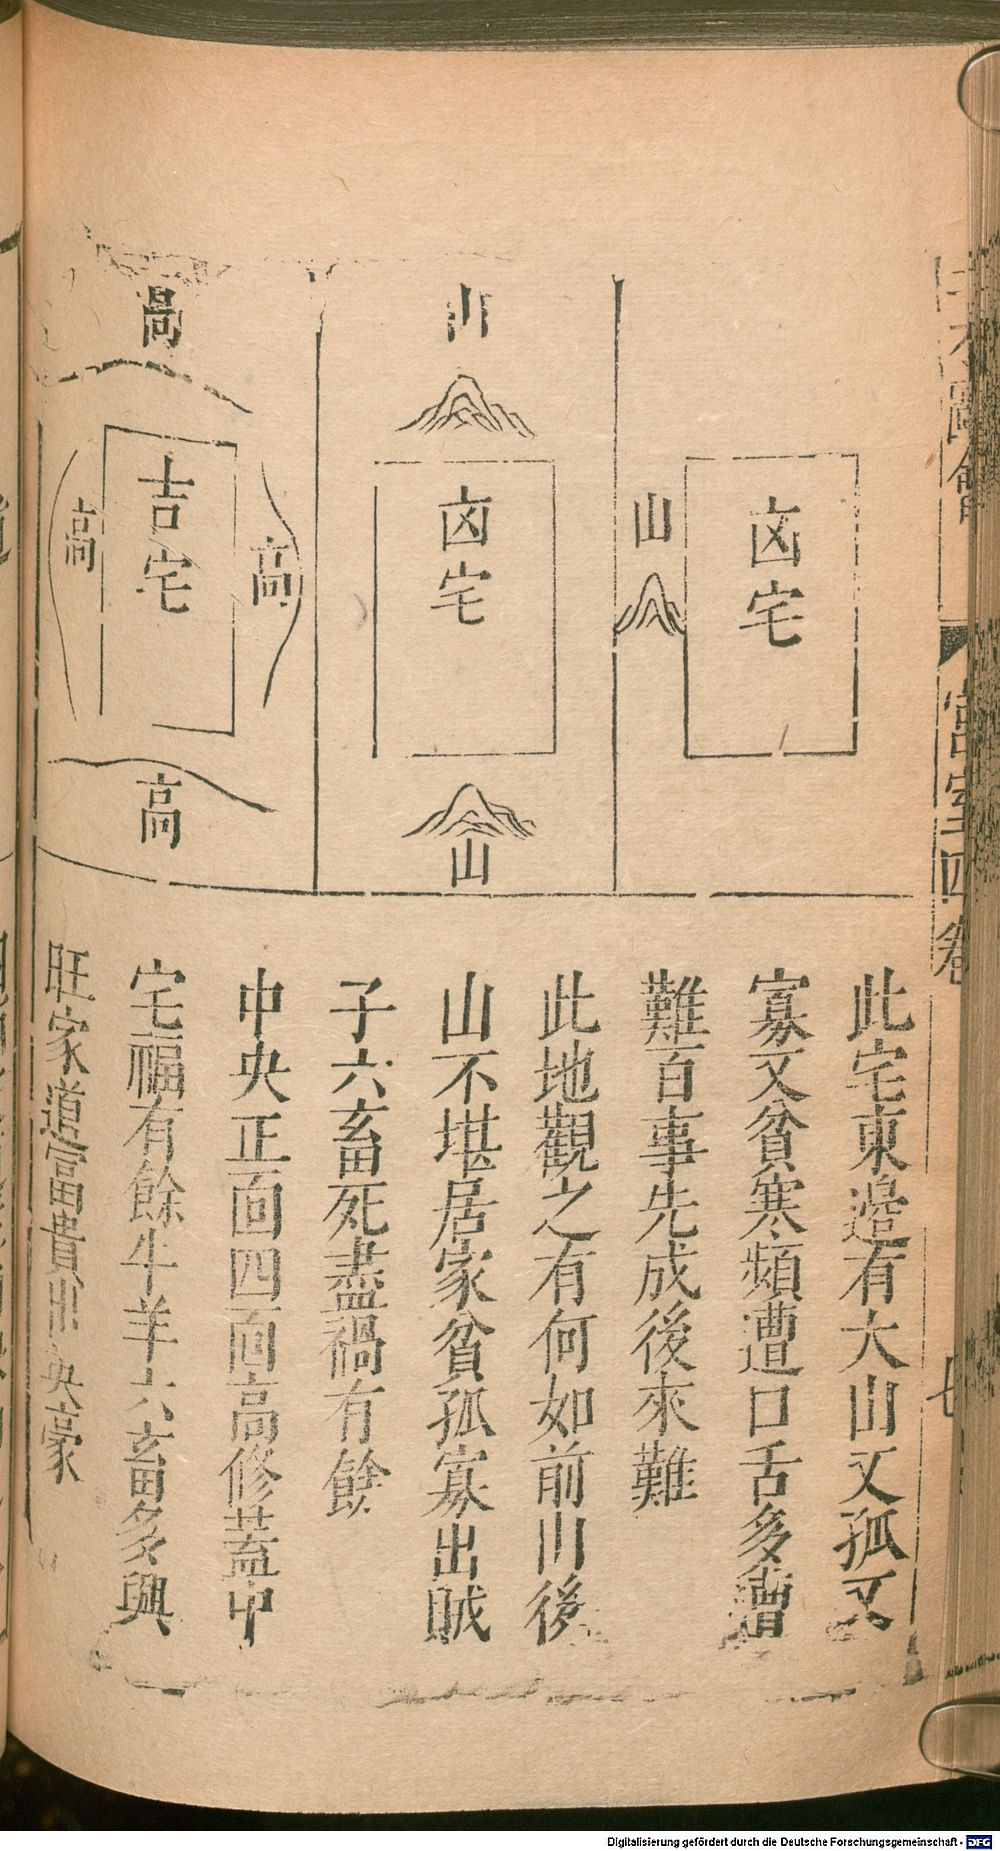 凶宅
山
此宅東邉有大山又孤又
寡又貧寒頻遭口舌多遭
難百事先成後來難
山
凶宅
山
此地觀之有何如前山後
山不堪居家貧孤寡出賊
子六畜死盡禍有餘
高
高
吉宅
高
高
中央正面四面高修蓋中
宅福有餘牛羊六畜多興
旺家道富貴出英豪
圖會
宮室四卷
Digitalisierung gefördert durch die Deutsche Forschungsgemeinschaft - DFG